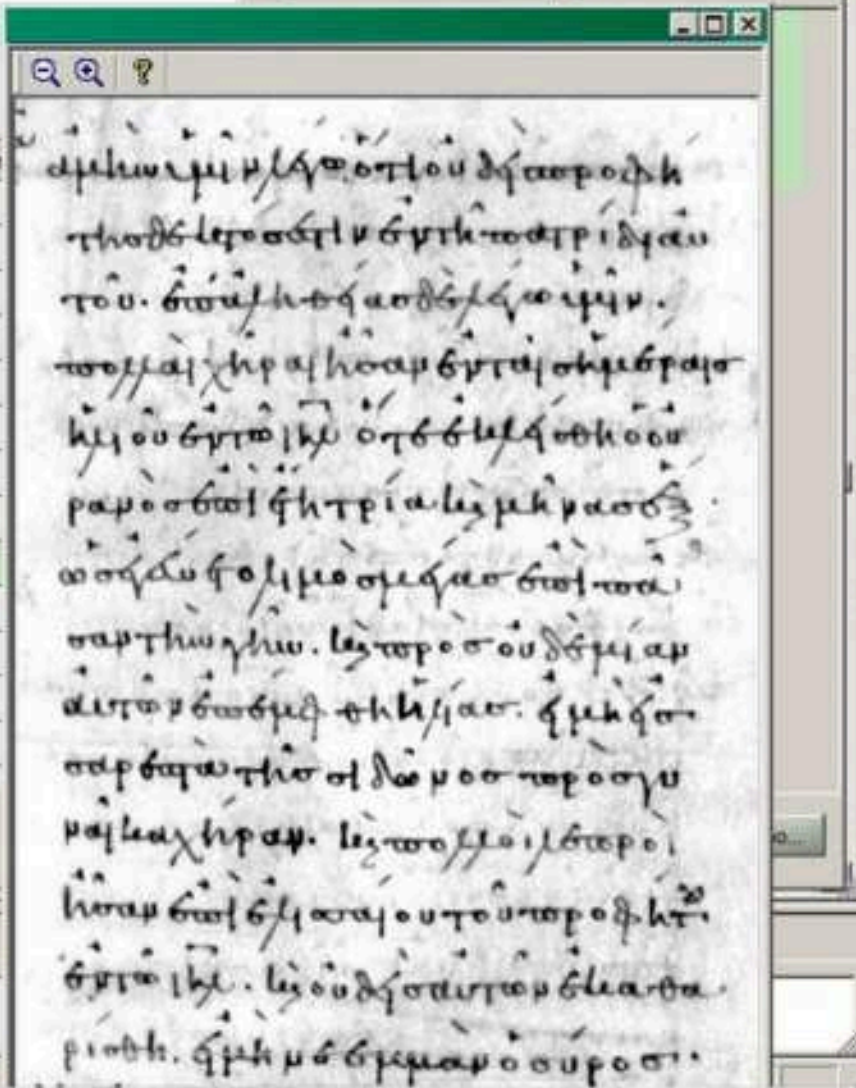 ἀμὴν ὑμῖν λέγω. ὅτι οὐδεὶς προφή
της δεκτός ἐστιν ἐν τῆ πατρίδι αὐ
τοῦ. ἐπ' ἀληθείας δὲ λέγω ὑμῖν.
πολλαὶ χῆραι ἦσαν ἐν ταῖς ἡμέραις
ἡλιοῦ ἐν τῶ ιηλ ὅτε ἐκλείσθη ὁ οὐ
ρανὸς ἐπὶ ἔτη τρία ϗ μῆνας ἕξ
ὡς ἐγένετο λιμὸς μέγας ἐπὶ πᾶ
σαν τὴν γῆν. ϗ πρὸς οὐδεμίαν
αὐτῶν ἐπέμφθη ἠλίας. εἰ μὴ εἰς
σάρεπτα τῆς σιδῶνος πρὸς γυ
ναῖκα χήραν. ϗ πολλοὶ λεπροὶ
ἦσαν ἐπὶ ἐλισαίου τοῦ προφήτου
ἐν τῶ ιηλ. ϗ οὐδεὶς αὐτῶν ἐκαθα
ρίσθη. εἰ μὴ νεεμμὰν ὁ σύρος.